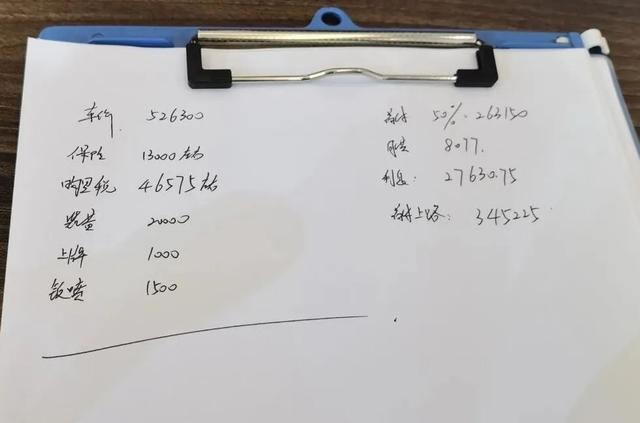 车价 526300
保险 13000左右
购置税 46575左右
装潢 20000
上牌 1000
钣喷 1500
首付 50% 263150
月供 8077.
利息: 27630.75
首付上路: 345225